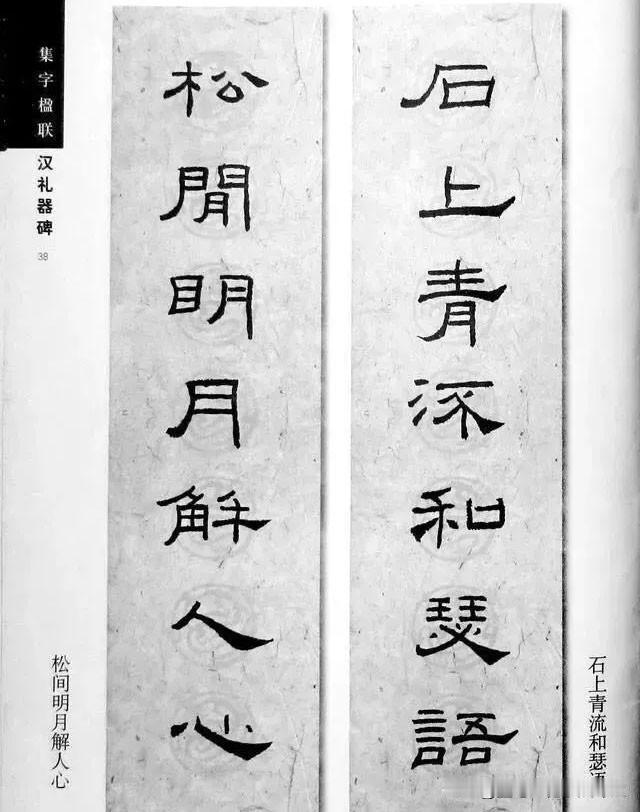 石上青流和瑟語
松閒明月解人心
集字楹联
汉礼器碑
38
石上青流和瑟语
松间明月解人心